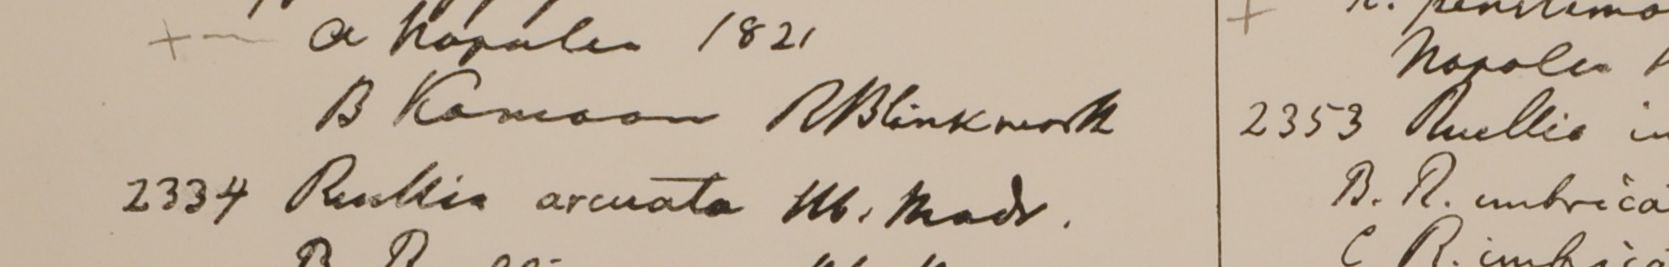 a Napalea 1821
B Kamaon RBlinkwork
2334 Ruellia arcuata Hb. Madr.
B R
R. penstemo
Napalea
2353 Ruellia in
B. R. imbrica
C R. imbrica